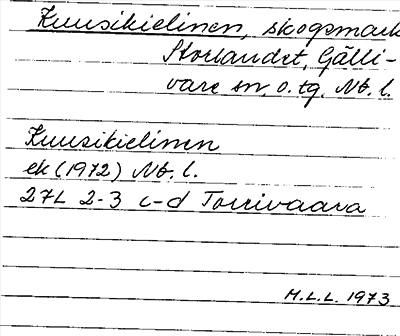 Kuusikielinen, skogsmark
Storlandet, Gälli-
vare sn, o. tg. Nb. l.
Kuusikielinen
ek (1972) Nb. l.
27L 2-3 c-d Torrivaara
M.L.L. 1973